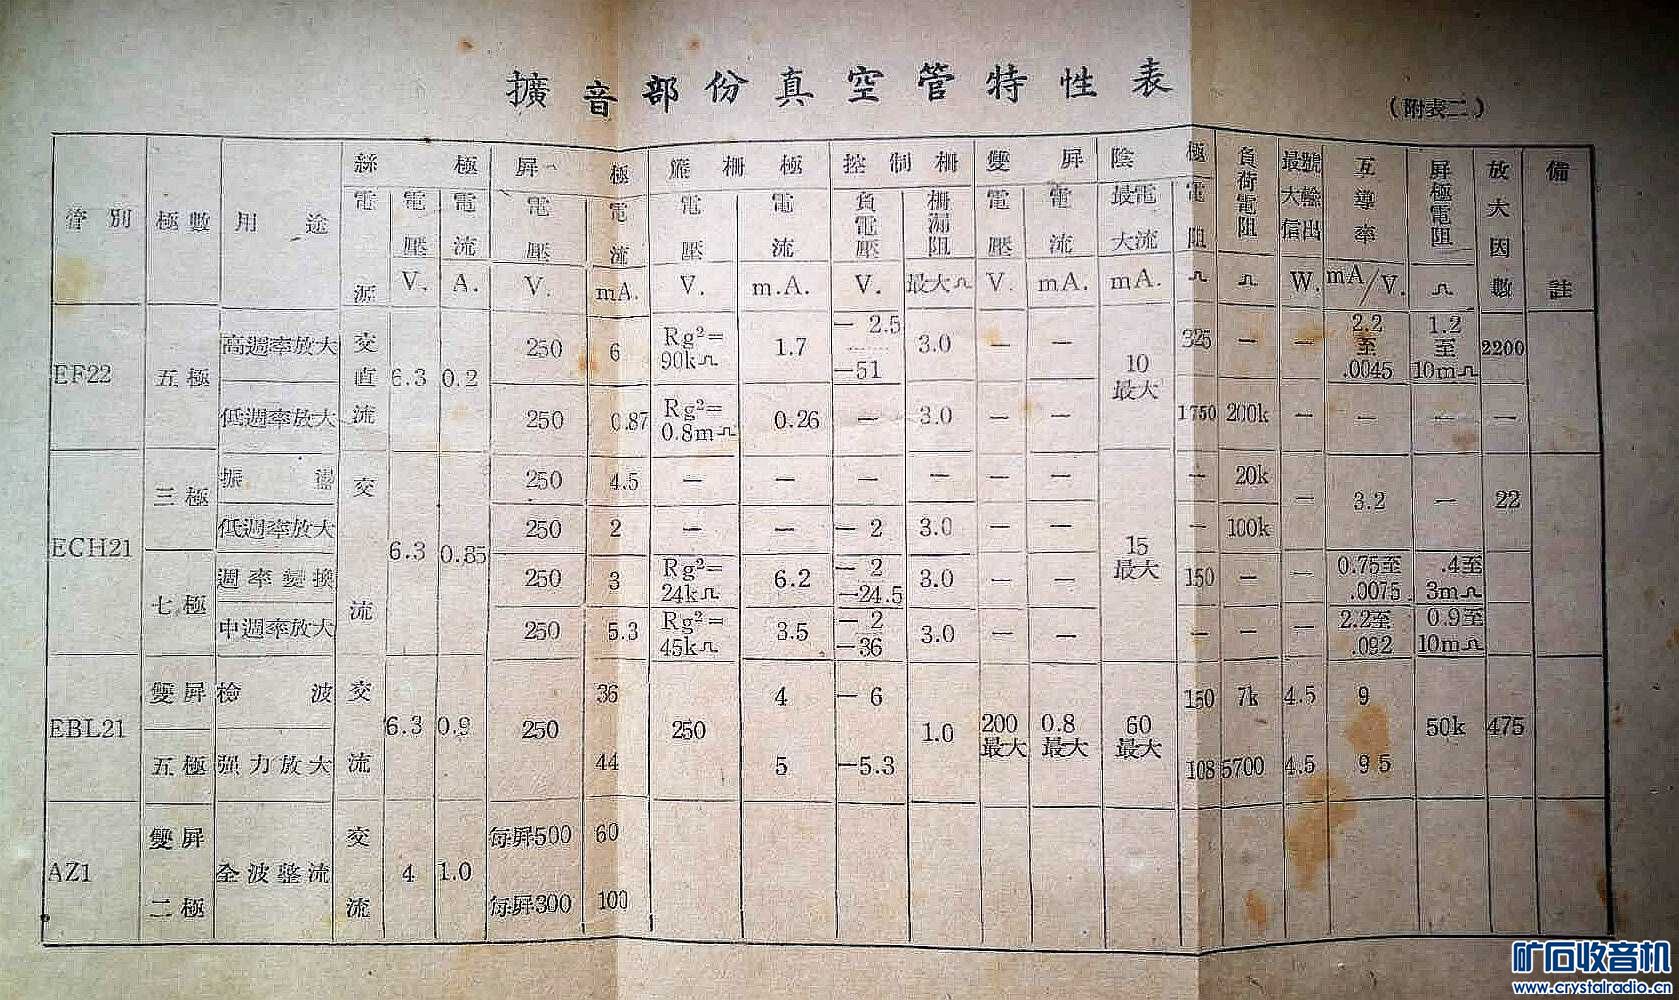 擴音部份真空管特性表
（附表二）
管別 極數 用途 絲極 屏極 簾柵極 控制柵 雙屏 陰極 負荷電阻 最大信號輸出 互導率 屏極電阻 放大因數 備註
電源 電壓 電流 電壓 電流 電壓 電流 負電壓 柵漏阻 電壓 電流 最大電流 電阻
V. A. V. mA. V. m.A. V. 最大Ω V. mA. mA. Ω Ω W. mA/V. Ω
EF22 五極 交直流 6.3 0.2 10最大
高週率放大 250 6 Rg²=90kΩ 1.7 −2.5 −51 3.0 — — 325 — — 2.2至.0045 1.2至10mΩ 2200
低週率放大 250 0.87 Rg²=0.8mΩ 0.26 — 3.0 — — 1750 200k — — — —
ECH21 交流 6.3 0.85 15最大
三極 振盪 250 4.5 — — — — — — — 20k — 3.2 — 22
低週率放大 250 2 — — −2 3.0 — — — 100k
七極 週率變換 250 3 Rg²=24kΩ 6.2 −2 −24.5 3.0 — — 150 — — 0.75至.0075 .4至3mΩ
中週率放大 250 5.3 Rg²=45kΩ 3.5 −2 −36 3.0 — — — — — 2.2至.092 0.9至10mΩ
EBL21 交流 6.3 0.9 250 250 1.0 200最大 0.8最大 60最大 50k 475
雙屏 檢波 36 4 −6 150 7k 4.5 9
五極 强力放大 44 5 −5.3 108 5700 4.5 9 5
AZ1 雙屏二極 全波整流 交流 4 1.0
每屏500 60
每屏300 100
矿石收音机
www.crystalradio.cn